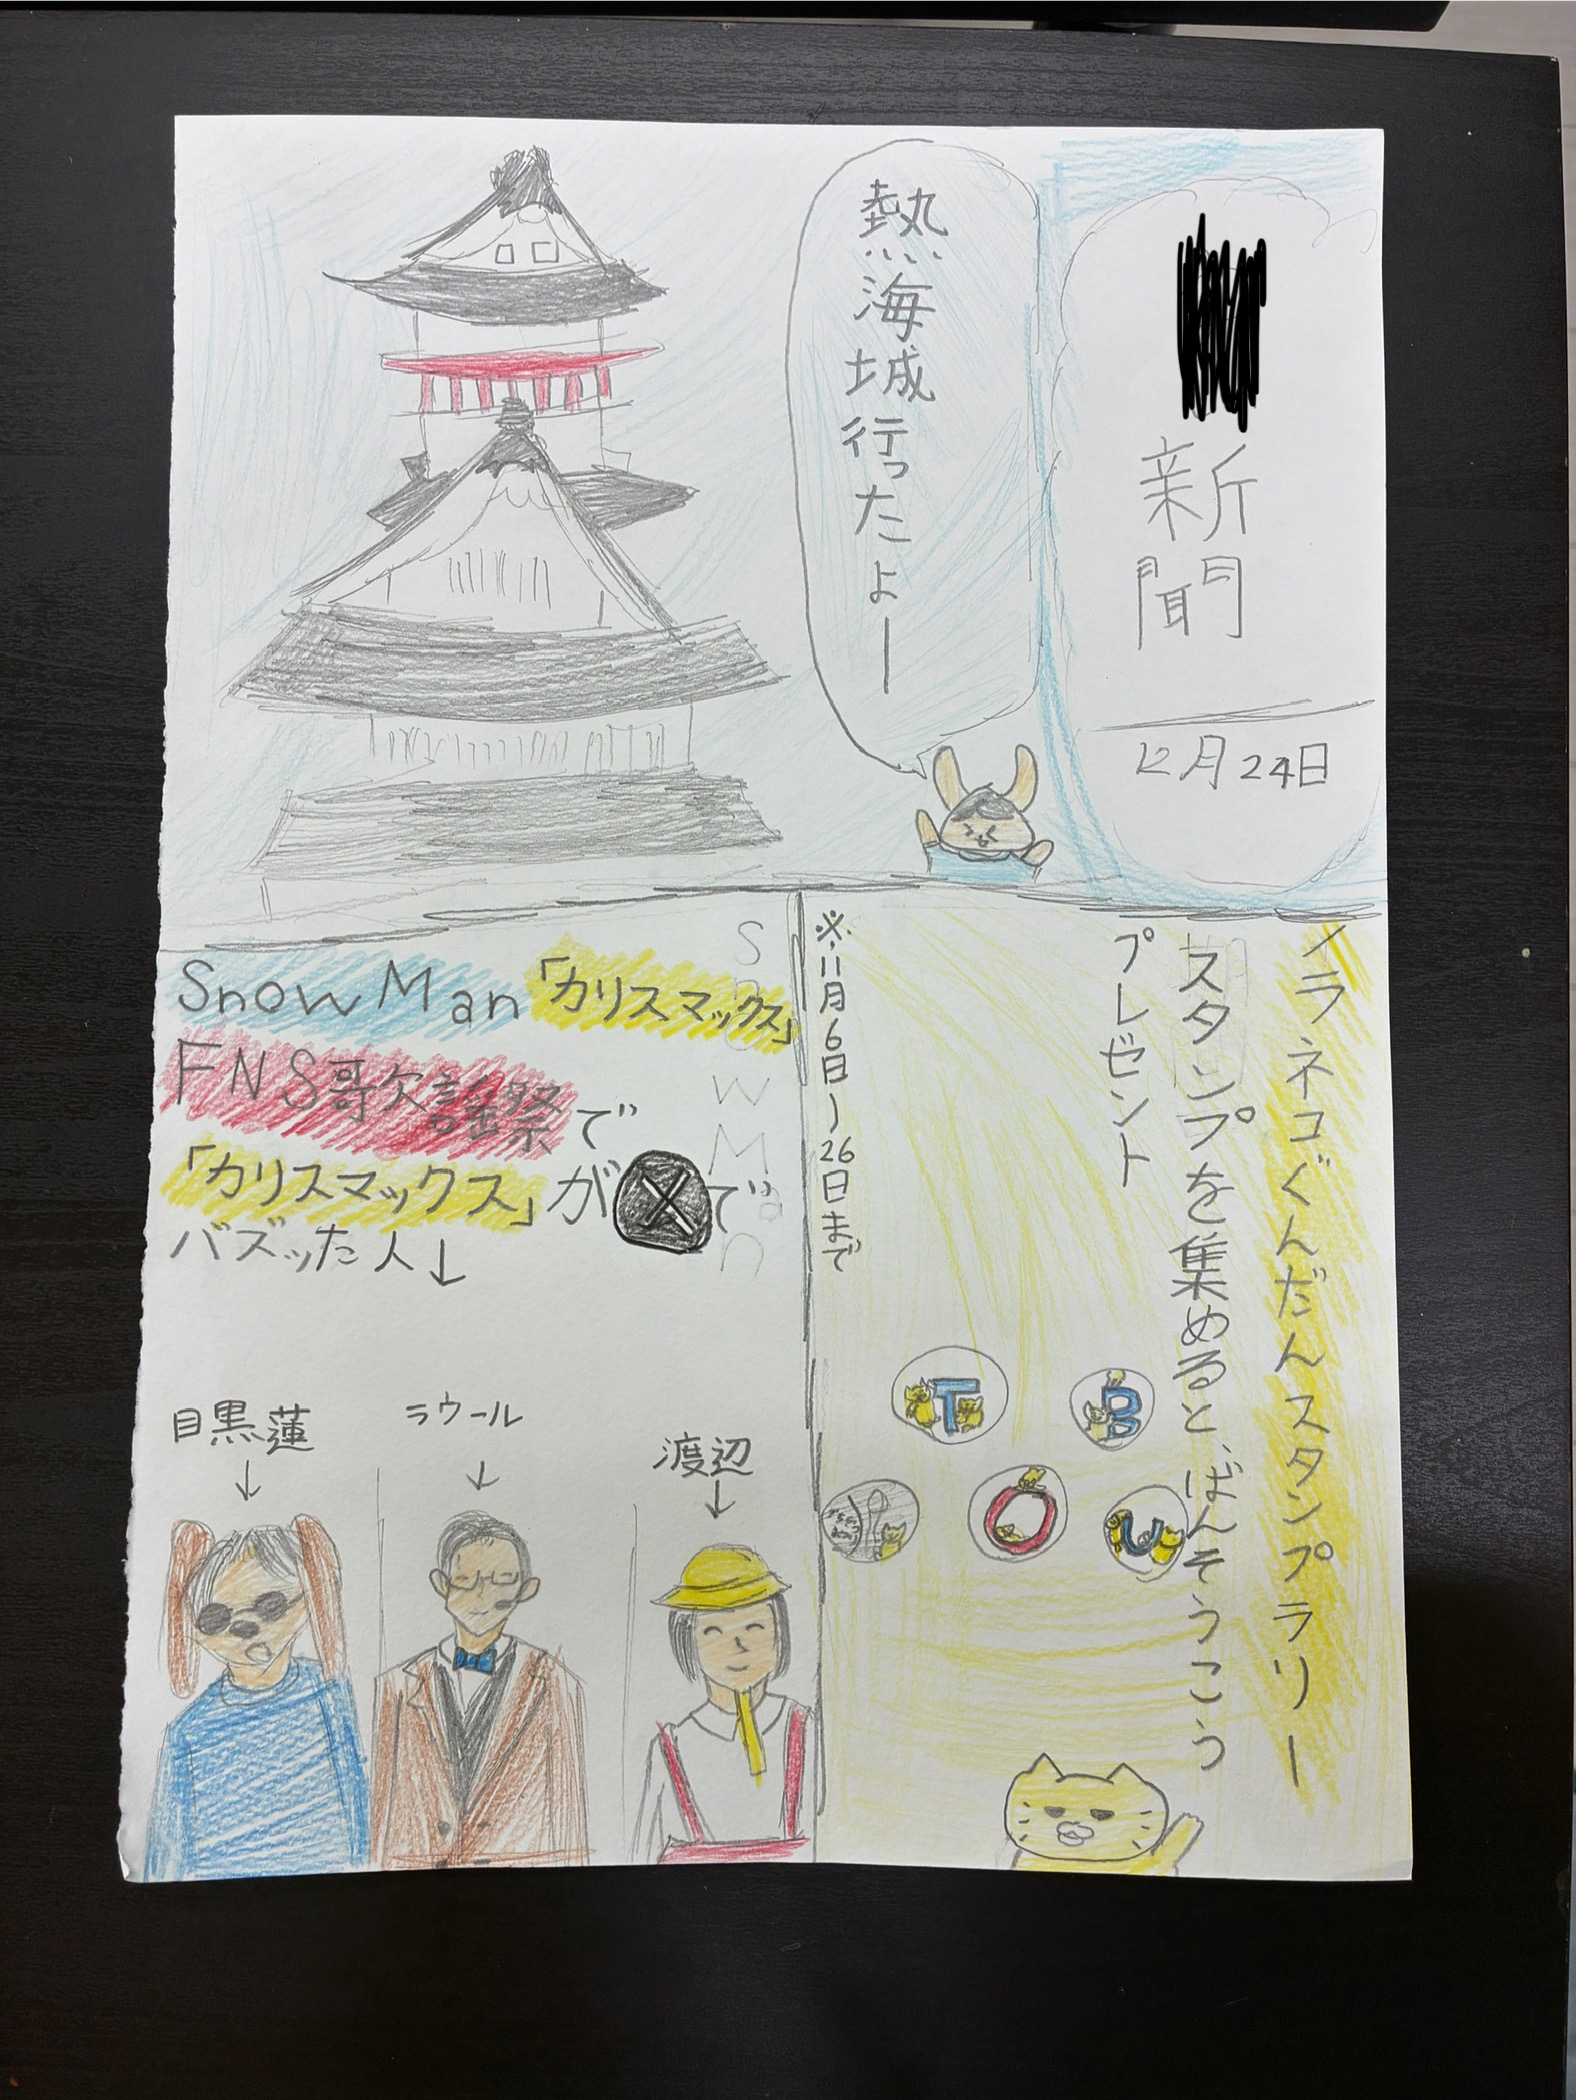 新聞
12月24日
熱海城行ったよー
ノラネコぐんだんスタンプラリー
スタンプを集めると、ばんそうこう
プレゼント
※11月6日〜26日まで
T
B
O
U
Snow Man「カリスマックス」
FNS歌謡祭で
「カリスマックス」がXで
バズッた人↓
Snow Man
目黒蓮
ラウール
渡辺